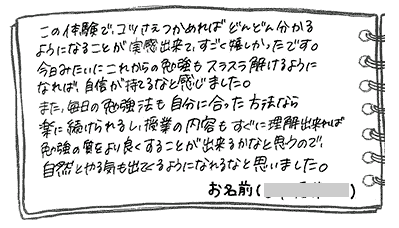 この体験で、コツさえつかめればどんどん分かる
ようになることが実感出来て、すごく嬉しかったです。
今日みたいにこれからの勉強もスラスラ解けるように
なれば、自信が持てるなと感じました。
また、毎日の勉強法も自分に合った方法なら
楽に続けられるし、授業の内容もすぐに理解出来れば
勉強の質をより良くすることが出来るかなと思うので、
自然とやる気も出てくるようになれるなと思いました。
お名前( )